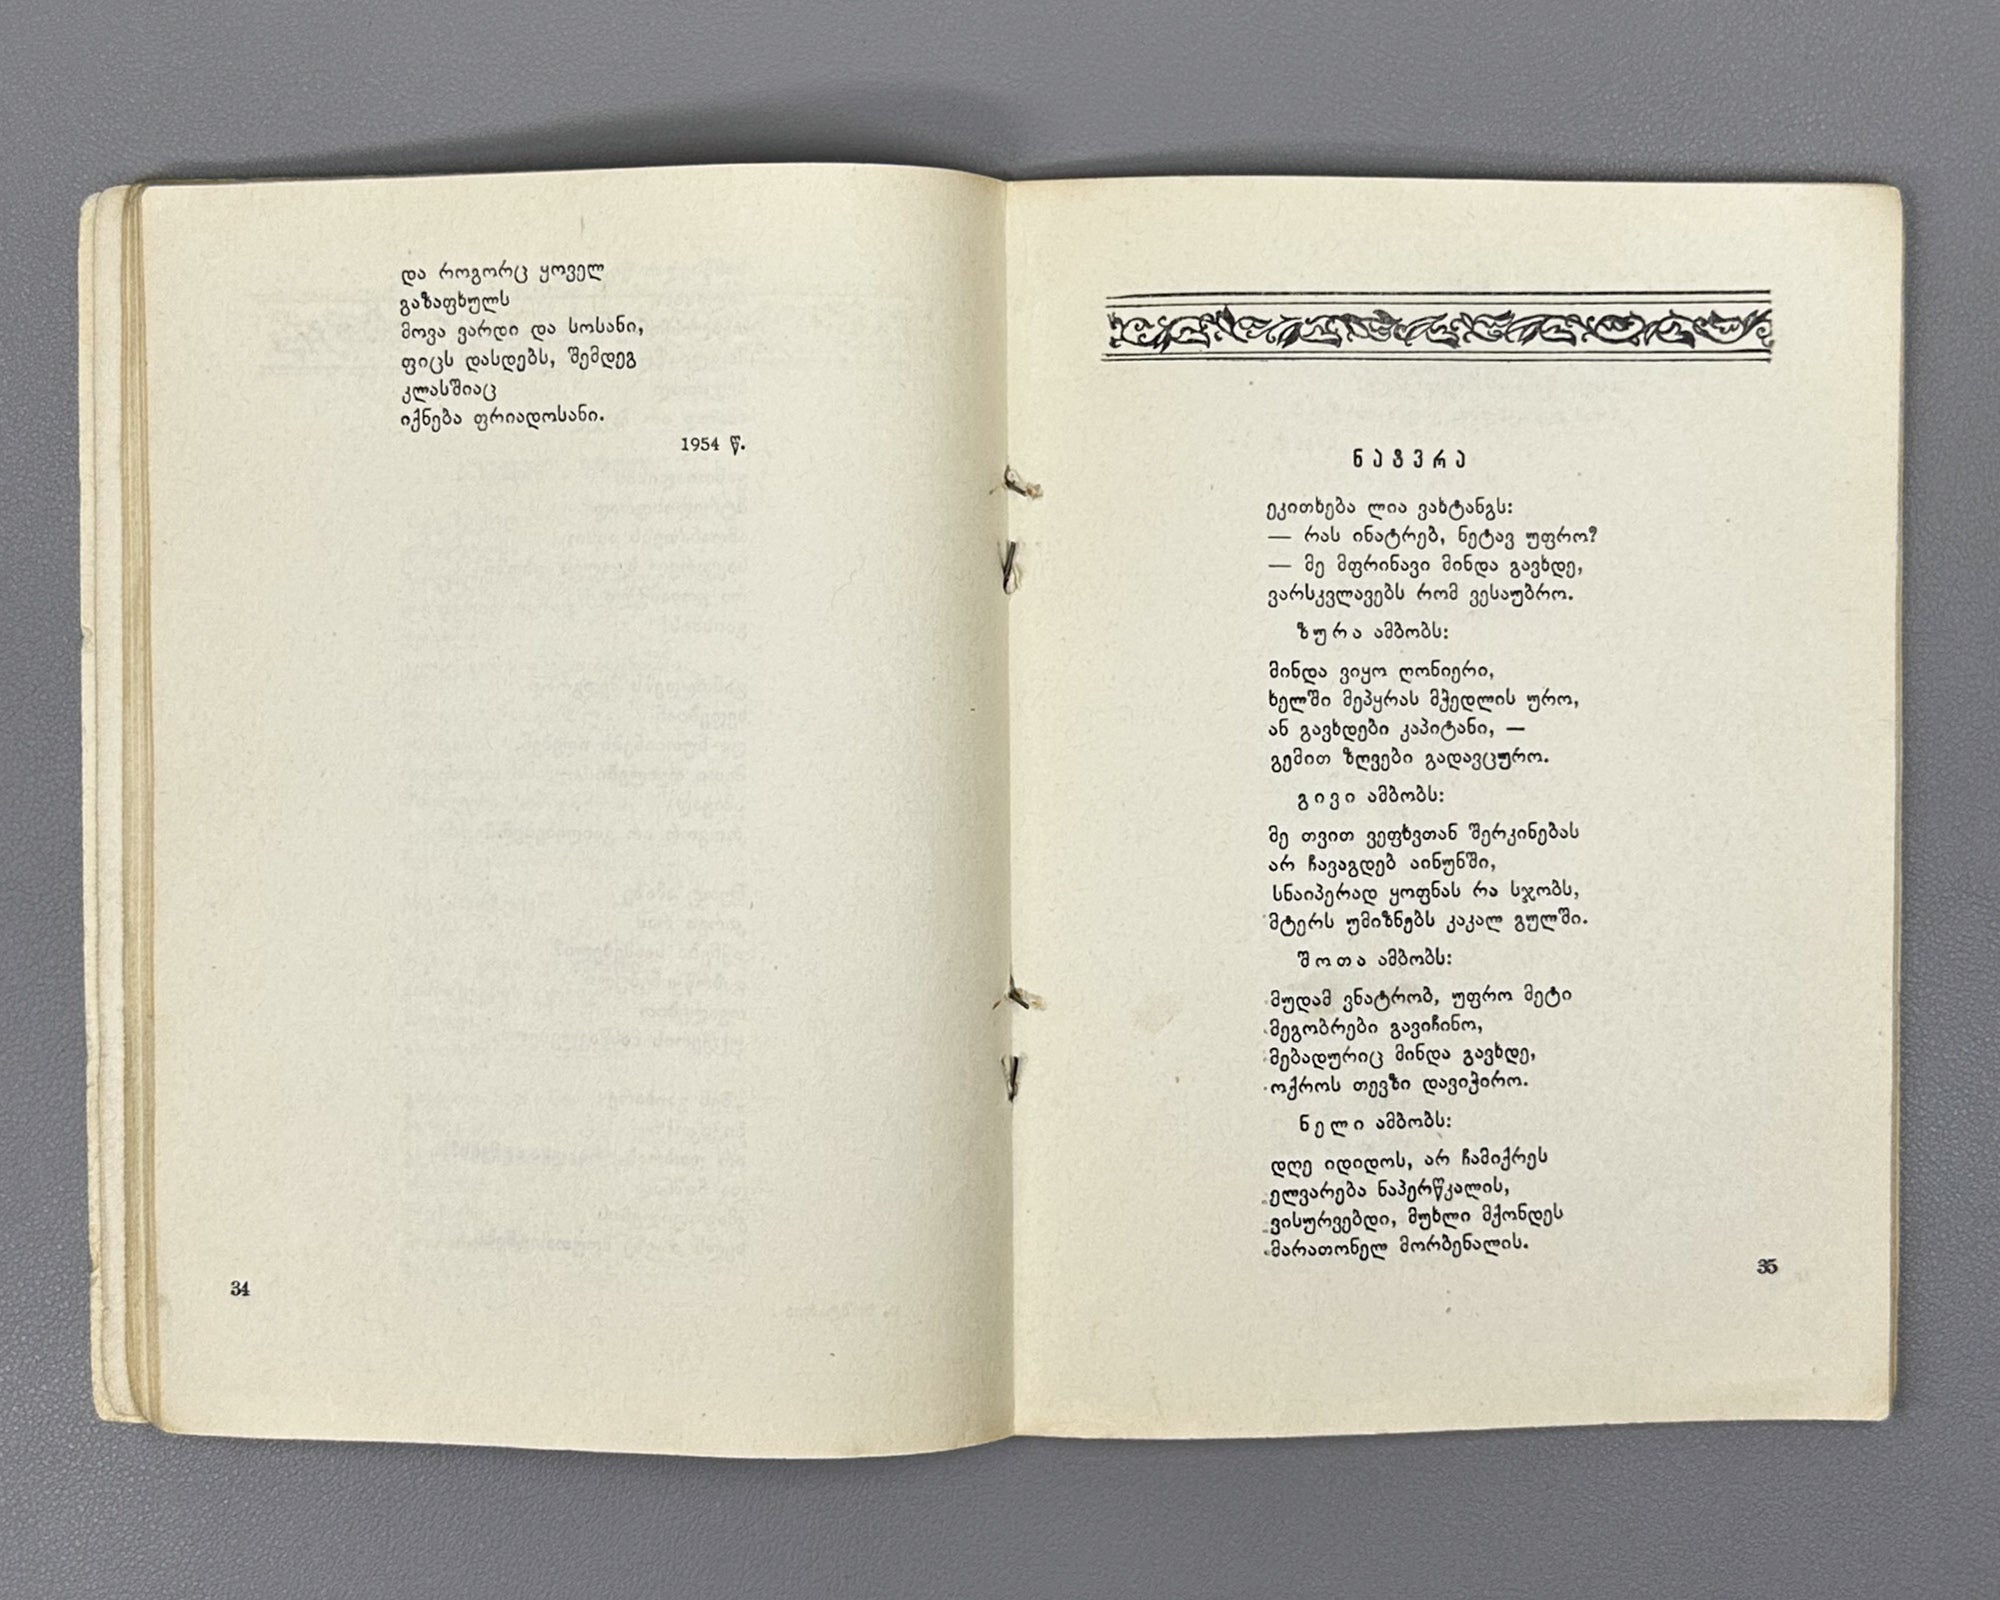 და როგორც ყოველ
გაზაფხულს
მოვა ვარდი და სოსანი,
ფიცს დასდებს, შემდეგ
კლასშიაც
იქნება ფრიადოსანი.
1954 წ.
34
ნატვრა
ეკითხება ლია ვახტანგს:
— რას ინატრებ, ნეტავ უფრო?
— მე მფრინავი მინდა გავხდე,
ვარსკვლავებს რომ ვესაუბრო.
ზურა ამბობს:
მინდა ვიყო ღონიერი,
ხელში მეპყრას მჭედლის ურო,
ან გავხდები კაპიტანი, —
გემით ზღვები გადავცურო.
გივი ამბობს:
მე თვით ვეფხვთან შერკინებას
არ ჩავაგდებ აინუნში,
სნაიპერად ყოფნას რა სჯობს,
მტერს უმიზნებს კაკალ გულში.
შოთა ამბობს:
მუდამ ვნატრობ, უფრო მეტი
მეგობრები გავიჩინო,
მებადურიც მინდა გავხდე,
ოქროს თევზი დავიჭირო.
ნელი ამბობს:
დღე იდიდოს, არ ჩამიქრეს
ელვარება ნაპერწკალის,
ვისურვებდი, მუხლი მქონდეს
მარათონელ მორბენალის.
35